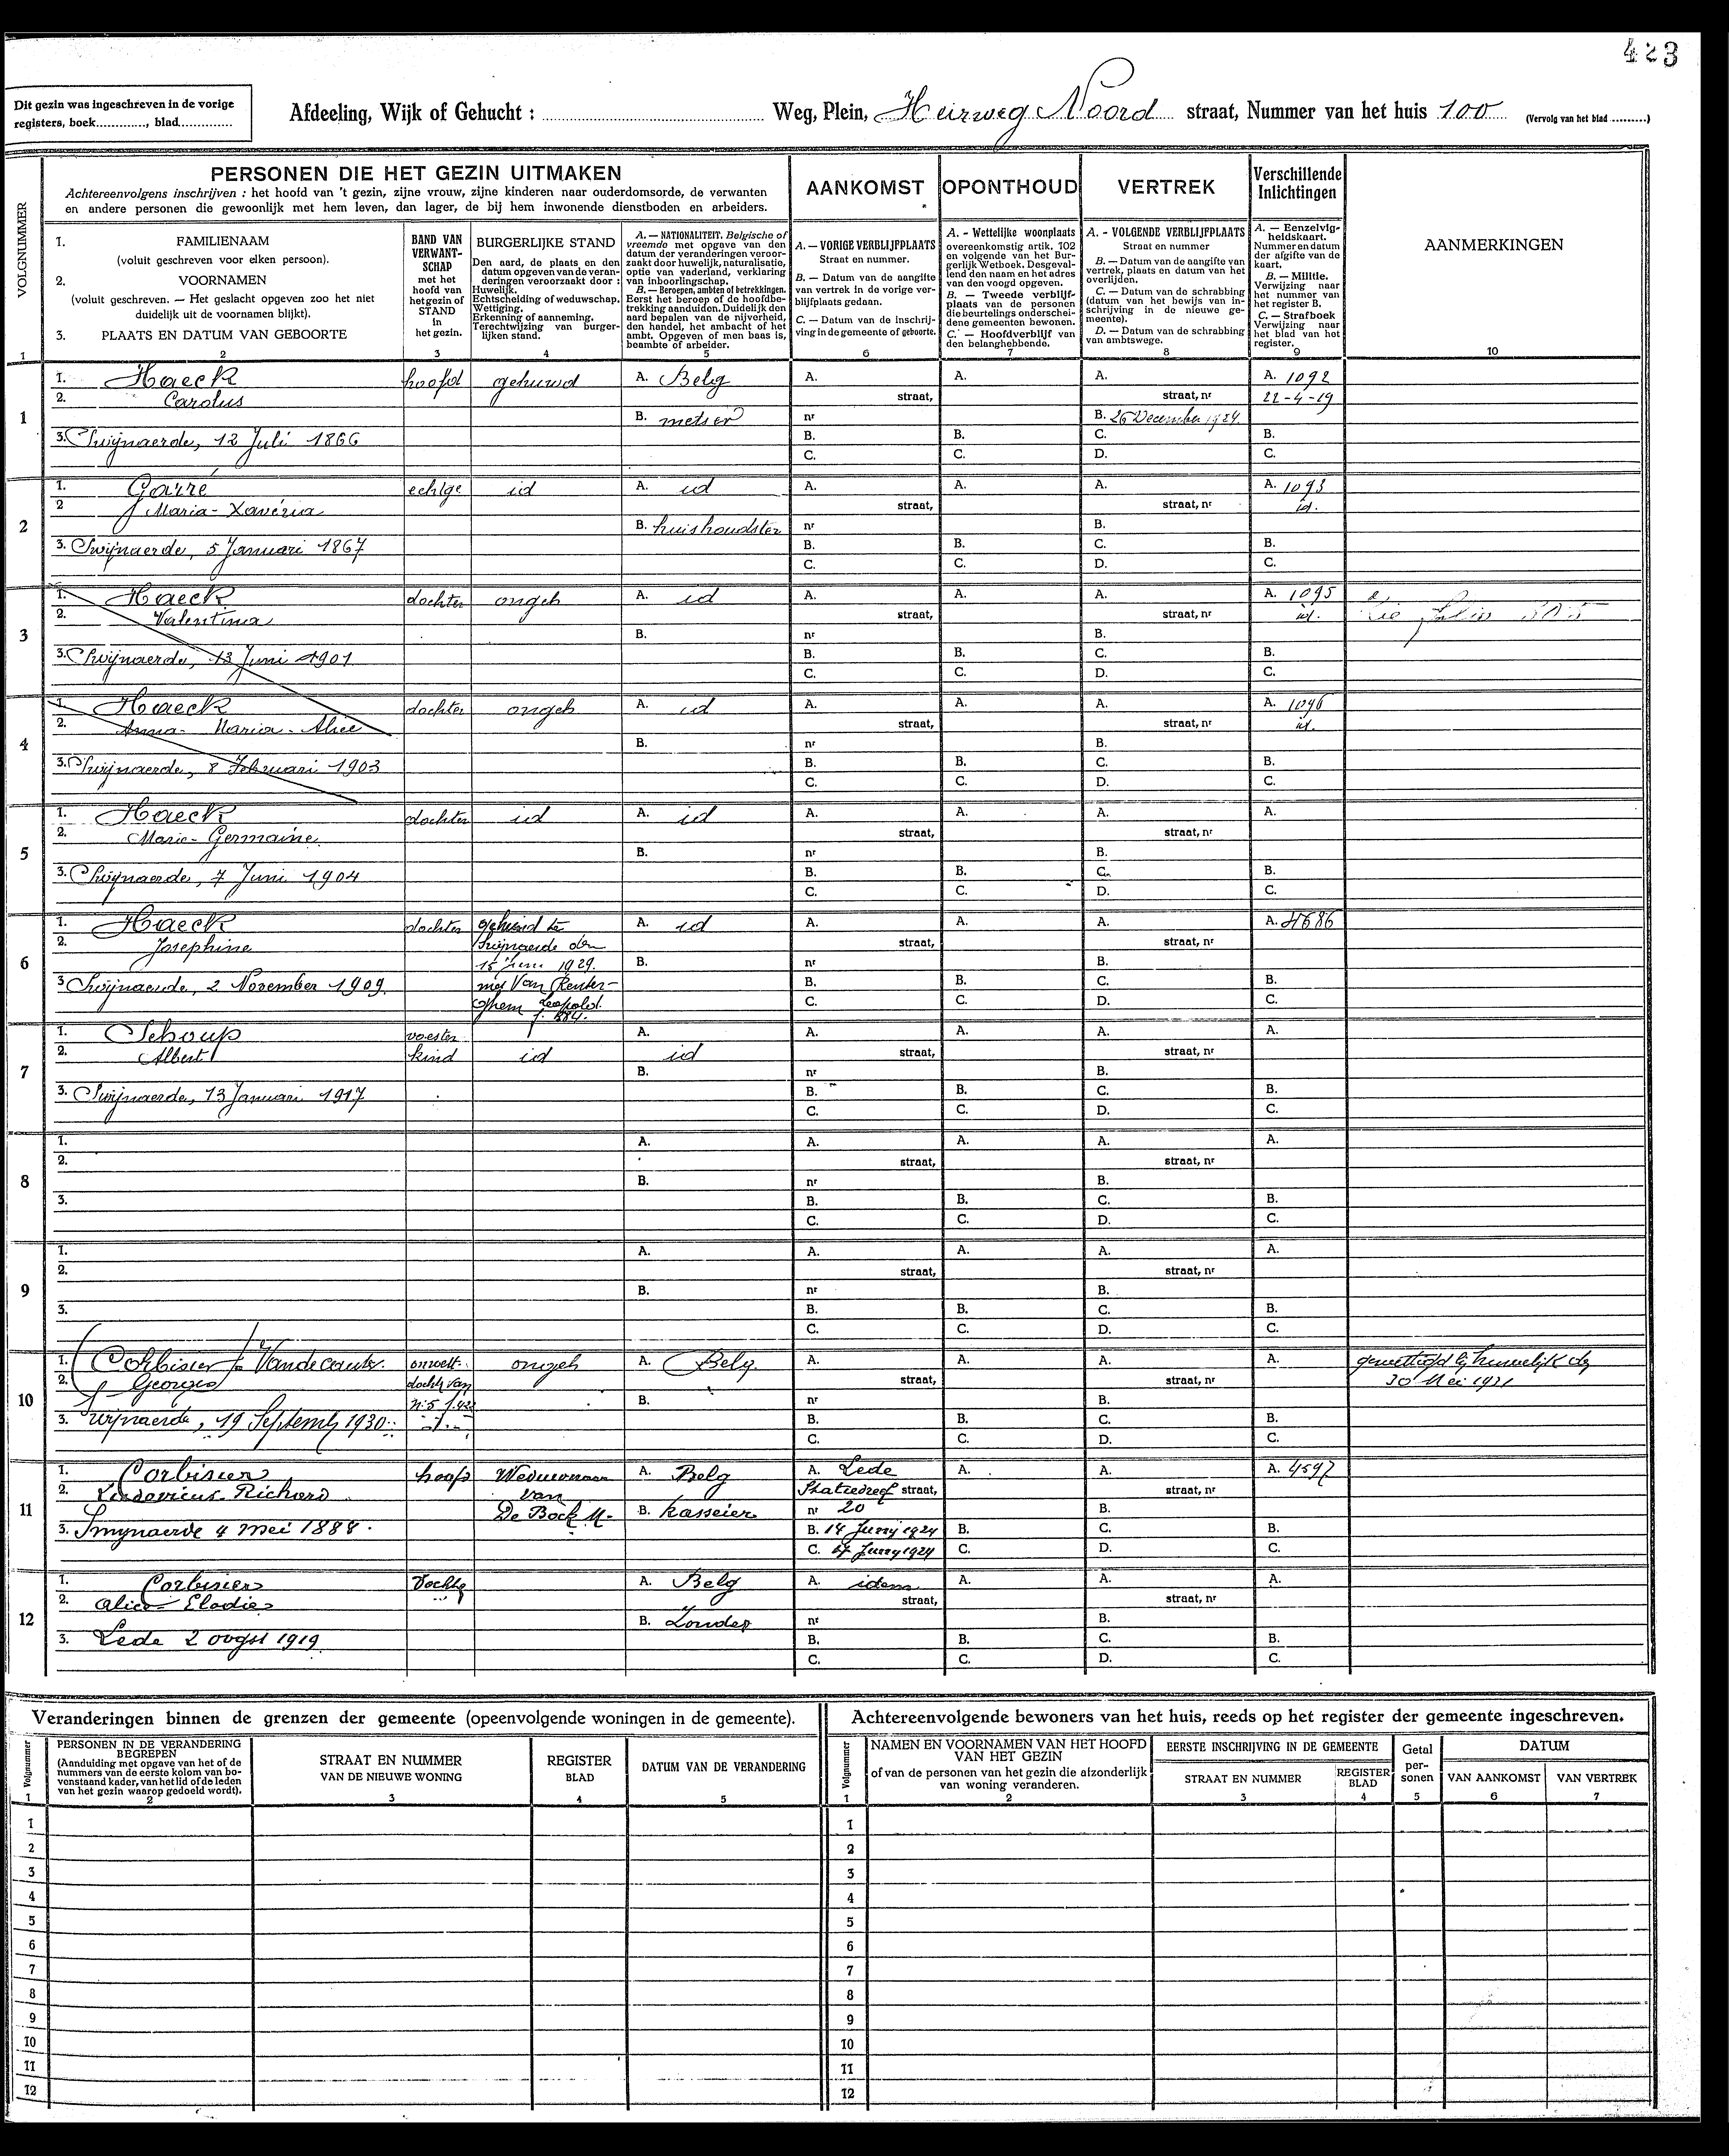 423
Dit gezin was ingeschreven in de vorige
registers, boek............, blad.............
Afdeeling, Wijk of Gehucht : Weg, Plein, Heirweg Noord straat, Nummer van het huis 100 (Vervolg van het blad .........)
PERSONEN DIE HET GEZIN UITMAKEN
Achtereenvolgens inschrijven : het hoofd van 't gezin, zijne vrouw, zijne kinderen naar ouderdomsorde, de verwanten
en andere personen die gewoonlijk met hem leven, dan lager, de bij hem inwonende dienstboden en arbeiders.
AANKOMST
OPONTHOUD
VERTREK
Verschillende
Inlichtingen
VOLGNUMMER
1
1. FAMILIENAAM
(voluit geschreven voor elken persoon).
2. VOORNAMEN
(voluit geschreven. — Het geslacht opgeven zoo het niet
duidelijk uit de voornamen blijkt).
3. PLAATS EN DATUM VAN GEBOORTE
2
BAND VAN
VERWANT-
SCHAP
met het
hoofd van
het gezin of
STAND
in
het gezin.
3
BURGERLIJKE STAND
Den aard, de plaats en den
datum opgeven van de veran-
deringen veroorzaakt door :
Huwelijk.
Echtscheiding of weduwschap.
Wettiging.
Erkenning of aanneming.
Terechtwijzing van burger-
lijken stand.
4
A. — NATIONALITEIT. Belgische of
vreemde met opgave van den
datum der veranderingen veroor-
zaakt door huwelijk, naturalisatie,
optie van vaderland, verklaring
van inboorlingschap.
B. — Beroepen, ambten of betrekkingen.
Eerst het beroep of de hoofdbe-
trekking aanduiden. Duidelijk den
aard bepalen van de nijverheid,
den handel, het ambacht of het
ambt. Opgeven of men baas is,
beambte of arbeider.
5
A. — VORIGE VERBLIJFPLAATS
Straat en nummer.
B. — Datum van de aangifte
van vertrek in de vorige ver-
blijfplaats gedaan.
C. — Datum van de inschrij-
ving in de gemeente of geboorte.
6
A. - Wettelijke woonplaats
overeenkomstig artik. 102
en volgende van het Bur-
gerlijk Wetboek. Desgeval-
lend den naam en het adres
van den voogd opgeven.
B. — Tweede verblijf-
plaats van de personen
die beurtelings onderschei-
dene gemeenten bewonen.
C. — Hoofdverblijf van
den belanghebbende.
7
A. - VOLGENDE VERBLIJFPLAATS
Straat en nummer
B. — Datum van de aangifte van
vertrek, plaats en datum van het
overlijden.
C. — Datum van de schrabbing
(datum van het bewijs van in-
schrijving in de nieuwe ge-
meente).
D. — Datum van de schrabbing
van ambtswege.
8
A. — Eenzelvig-
heidskaart.
Nummer en datum
der afgifte van de
kaart.
B. — Militie.
Verwijzing naar
het nummer van
het register B.
C. — Strafboek
Verwijzing naar
het blad van het
register.
9
AANMERKINGEN
10
1. Haeck hoofd gehuwd A. Belg A. A. A. A. 1092
2. Carolus straat, straat, nr 22-4-19
1 B. metser nr B. 26 December 1924.
3. Swijnaerde, 12 Juli 1866 B. B. C. B.
C. C. D. C.
1. Garré echtge id A. id A. A. A. A. 1093
2 Maria-Xavéria straat, straat, nr id.
2 B. huishoudster nr B.
3. Swijnaerde, 5 Januari 1867 B. B. C. B.
C. C. D. C.
1. Haeck dochter ongeh A. id A. A. A. A. 1095
2. Valentina straat, straat, nr id.
3 B. nr B.
3. Swijnaerde, 13 Juni 1901 B. B. C. B.
C. C. D. C.
1. Haeck dochter ongeh A. id A. A. A. A. 1096
2. Anna-Maria-Alice straat, straat, nr id.
4 B. nr B.
3. Swijnaerde, 8 Februari 1903 B. B. C. B.
C. C. D. C.
1. Haeck dochter id A. id A. A. A. A.
2. Maria-Germaine straat, straat, nr
5 B. nr B.
3. Swijnaerde, 7 Juni 1904 B. B. C. B.
C. C. D. C.
1. Haeck dochter gehuwd te A. id A. A. A. A.
2. Josephine Swijnaerde den straat, straat, nr
6 15 Juni 1929. B. nr B.
3 Swijnaerde, 2 November 1909. met Van Renter- B. B. C. B.
ghem Leopold. C. C. D. C.
1. Schoup voester A. A. A. A. A.
2. Albert kind id id straat, straat, nr
7 B. nr B.
3. Swijnaerde, 13 Januari 1917 B. B. C. B.
C. C. D. C.
1. A. A. A. A. A.
2. straat, straat, nr
8 B. nr B.
3. B. B. C. B.
C. C. D. C.
1. A. A. A. A. A.
2. straat, straat, nr
9 B. nr B.
3. B. B. C. B.
C. C. D. C.
1. Corbisier onwett. ongeh A. Belg. A. A. A. A. gewettigd bij huwelijk dg
2. Georges docht van straat, straat, nr 30 Mei 1931
10 B. nr B.
3. Swijnaerde, 19 Septemb 1930 B. B. C. B.
C. C. D. C.
1. Corbisier hoofd Weduwnaar A. Belg A. Lede A. A. A. 4597
2. Ludovicus-Richard van Statiedreef straat, straat, nr
11 De Bock M. B. kasseier nr 20 B.
3. Swynaerde 4 mei 1888. B. 14 Juny 1924 B. C. B.
C. 17 Juny 1924 C. D. C.
1. Corbisier Dochtg A. Belg A. idem A. A. A.
2. Alice-Elodie straat, straat, nr
12 B. Zonder nr B.
3. Lede 2 oogst 1919. B. B. C. B.
C. C. D. C.
Veranderingen binnen de grenzen der gemeente (opeenvolgende woningen in de gemeente).
Volgnummer
1
PERSONEN IN DE VERANDERING
BEGREPEN
(Aanduiding met opgave van het of de
nummers van de eerste kolom van bo-
venstaand kader, van het lid of de leden
van het gezin waarop gedoeld wordt).
2
STRAAT EN NUMMER
VAN DE NIEUWE WONING
3
REGISTER
BLAD
4
DATUM VAN DE VERANDERING
5
1
2
3
4
5
6
7
8
9
10
11
12
Achtereenvolgende bewoners van het huis, reeds op het register der gemeente ingeschreven.
Volgnummer
1
NAMEN EN VOORNAMEN VAN HET HOOFD
VAN HET GEZIN
of van de personen van het gezin die afzonderlijk
van woning veranderen.
2
EERSTE INSCHRIJVING IN DE GEMEENTE
STRAAT EN NUMMER
3
REGISTER
BLAD
4
Getal
per-
sonen
5
DATUM
VAN AANKOMST
6
VAN VERTREK
7
1
2
3
4
5
6
7
8
9
10
11
12